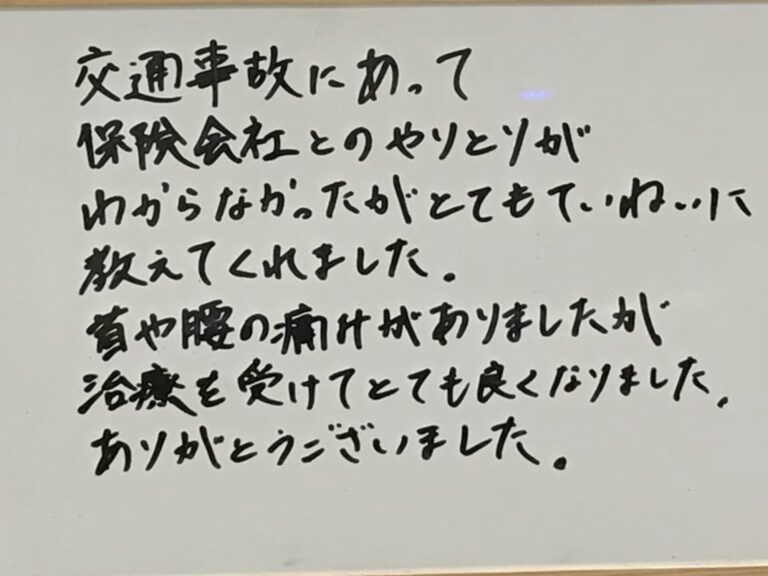 交通事故にあって
保険会社とのやりとりが
わからなかったがとてもていねいに
教えてくれました。
首や腰の痛みがありましたが
治療を受けてとても良くなりました。
ありがとうございました。